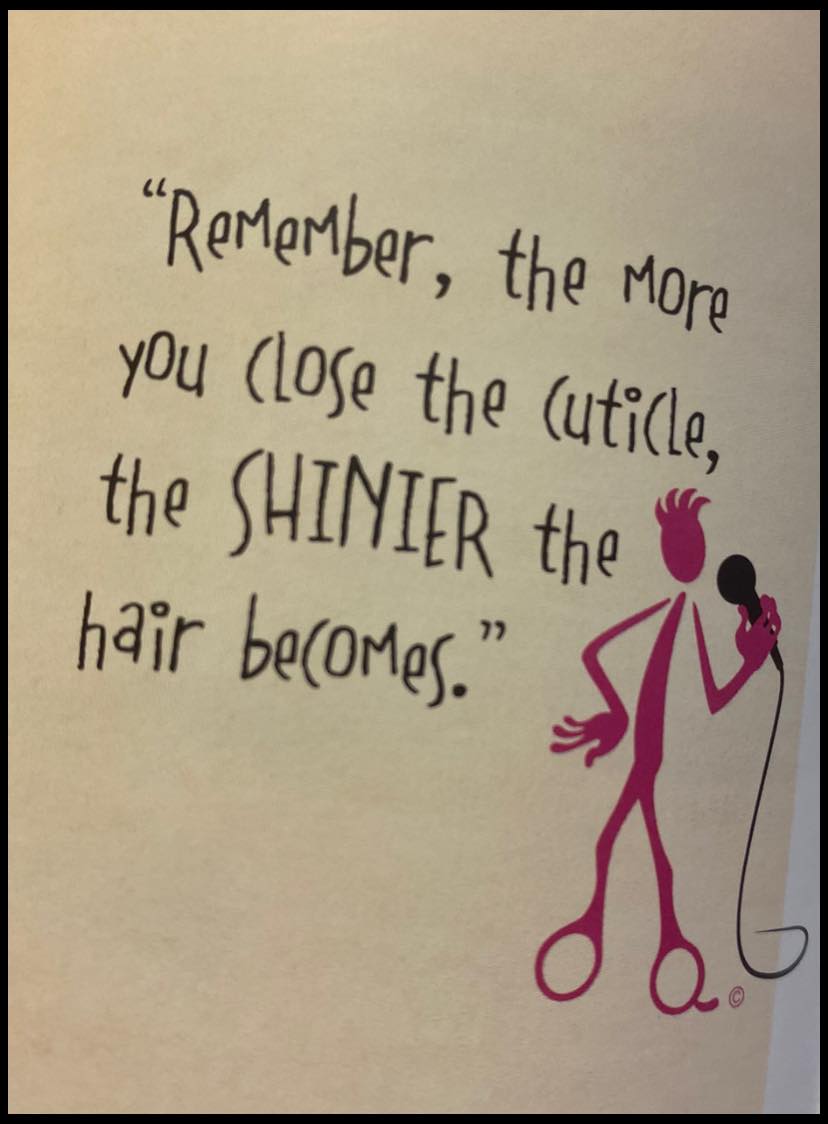 “Remember, the more
you close the cuticle,
the SHINIER the
hair becomes.”
©